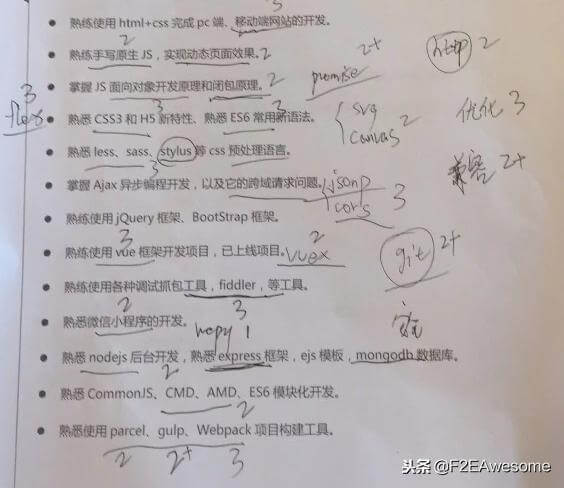 熟练使用 html+css 完成 pc 端、移动端网站的开发。
3
熟练手写原生 JS，实现动态页面效果。 2
2
2+
http 2
掌握 JS 面向对象开发原理和闭包原理。 2
promise
3
flex
熟悉 CSS3 和 H5 新特性、熟悉 ES6 常用新语法。
3
3
svg
canvas
2
优化 3
熟悉 less、sass、stylus 等 css 预处理语言。
3
掌握 Ajax 异步编程开发，以及它的跨域请求问题。
jsonp
cors
3
兼容 2+
熟练使用 jQuery 框架、BootStrap 框架。
3
熟练使用 vue 框架开发项目，已上线项目。
vuex
2
git 2+
熟练使用各种调试抓包工具，fiddler，等工具。
2
3
熟悉微信小程序的开发。
1
熟悉 nodejs 后台开发，熟悉 express 框架，ejs 模板，mongodb 数据库。
2
熟悉 CommonJS、CMD、AMD、ES6 模块化开发。
2
熟悉使用 parcel、gulp、Webpack 项目构建工具。
2 2+ 3
头条 @F2EAwesome